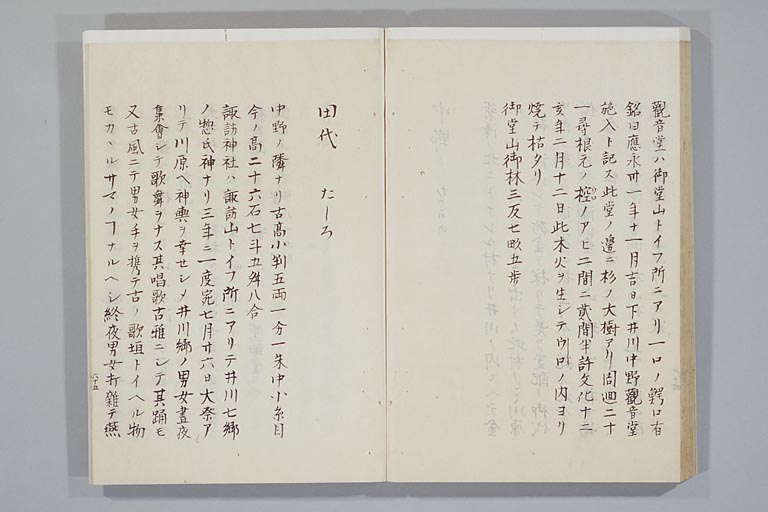 觀音堂ハ御堂山トイフ所ニアリ一口ノ鰐口有
銘曰應永卅一年十一月吉日下井川中野觀音堂
施入ト記ス此堂ノ邉ニ杉ノ大樹アリ周囬二十
一尋根元ノ椌ウロノアヒ二間ニ貳間半許文化十二
亥年二月十二日此木火ヲ生シテウロノ内ヨリ
燒テ枯タリ
御堂山御林三反七畝五歩
田代 たしろ
中野ノ隣ナリ古髙小判五両一分一朱中小糸目
今ノ髙二十六石七斗五舛八合
諏訪神社ハ諏訪山トイフ所ニアリテ井川七郷
ノ惣氏神ナリ三年ニ一度宛七月廿六日大祭ア
リテ川原ヘ神輿ヲ幸セシメ井川郷ノ男女晝夜
集會シテ歌舞ヲナス其唱歌古雅ニシテ其踊モ
又古風ニテ男女手ヲ携テ古ノ歌垣トイヘル物
モカヽルサマノヿナルヘシ終夜男女打雑テ燕
六十五